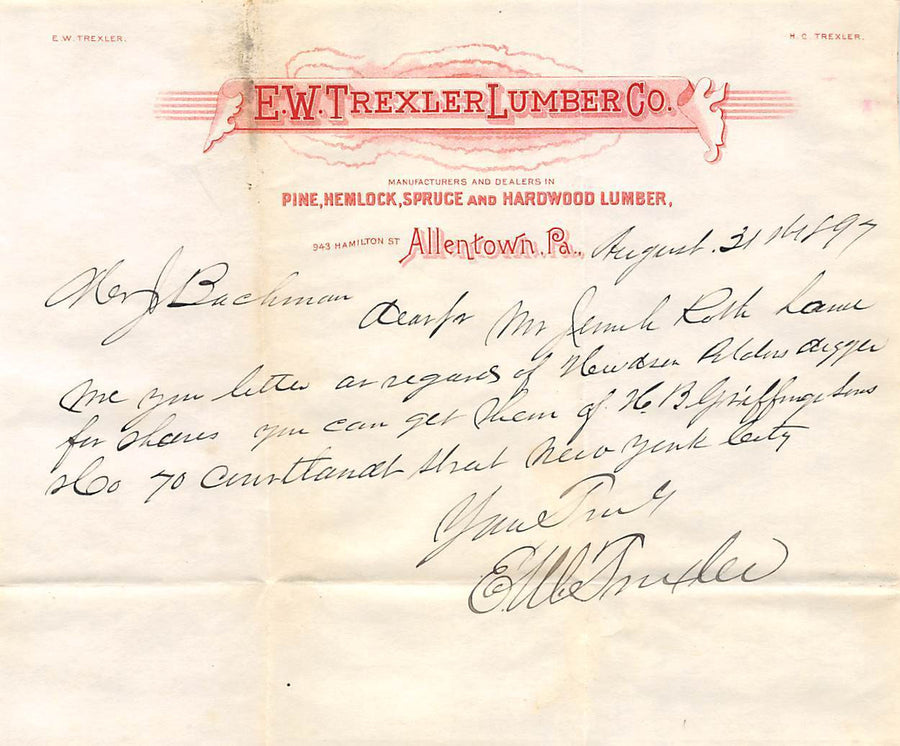 E. W. TREXLER.
H. C. TREXLER.
E.W. TREXLER LUMBER CO.
MANUFACTURERS AND DEALERS IN
PINE, HEMLOCK, SPRUCE AND HARDWOOD LUMBER,
943 HAMILTON ST Allentown, Pa., August. 31st 1897
Mr J Bachman
Dear sir Mr Roth
me you letter as regards of digger
for shares you can get them of H. B. Griffing Sons
&Co 70 Courtlandt street New York City
Yours Truly
E W Trexler